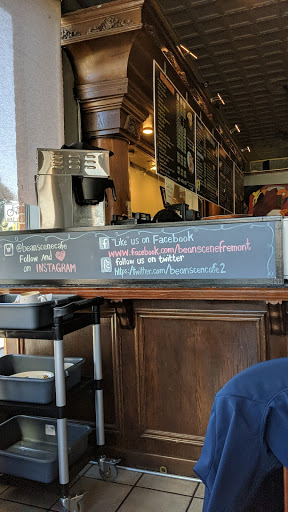 @beanscenecafe
Follow And
on INSTAGRAM
"Like" us on Facebook
www.facebook.com/beanscenefremont
Follow us on twitter
https://twitter.com/beanscencafe2